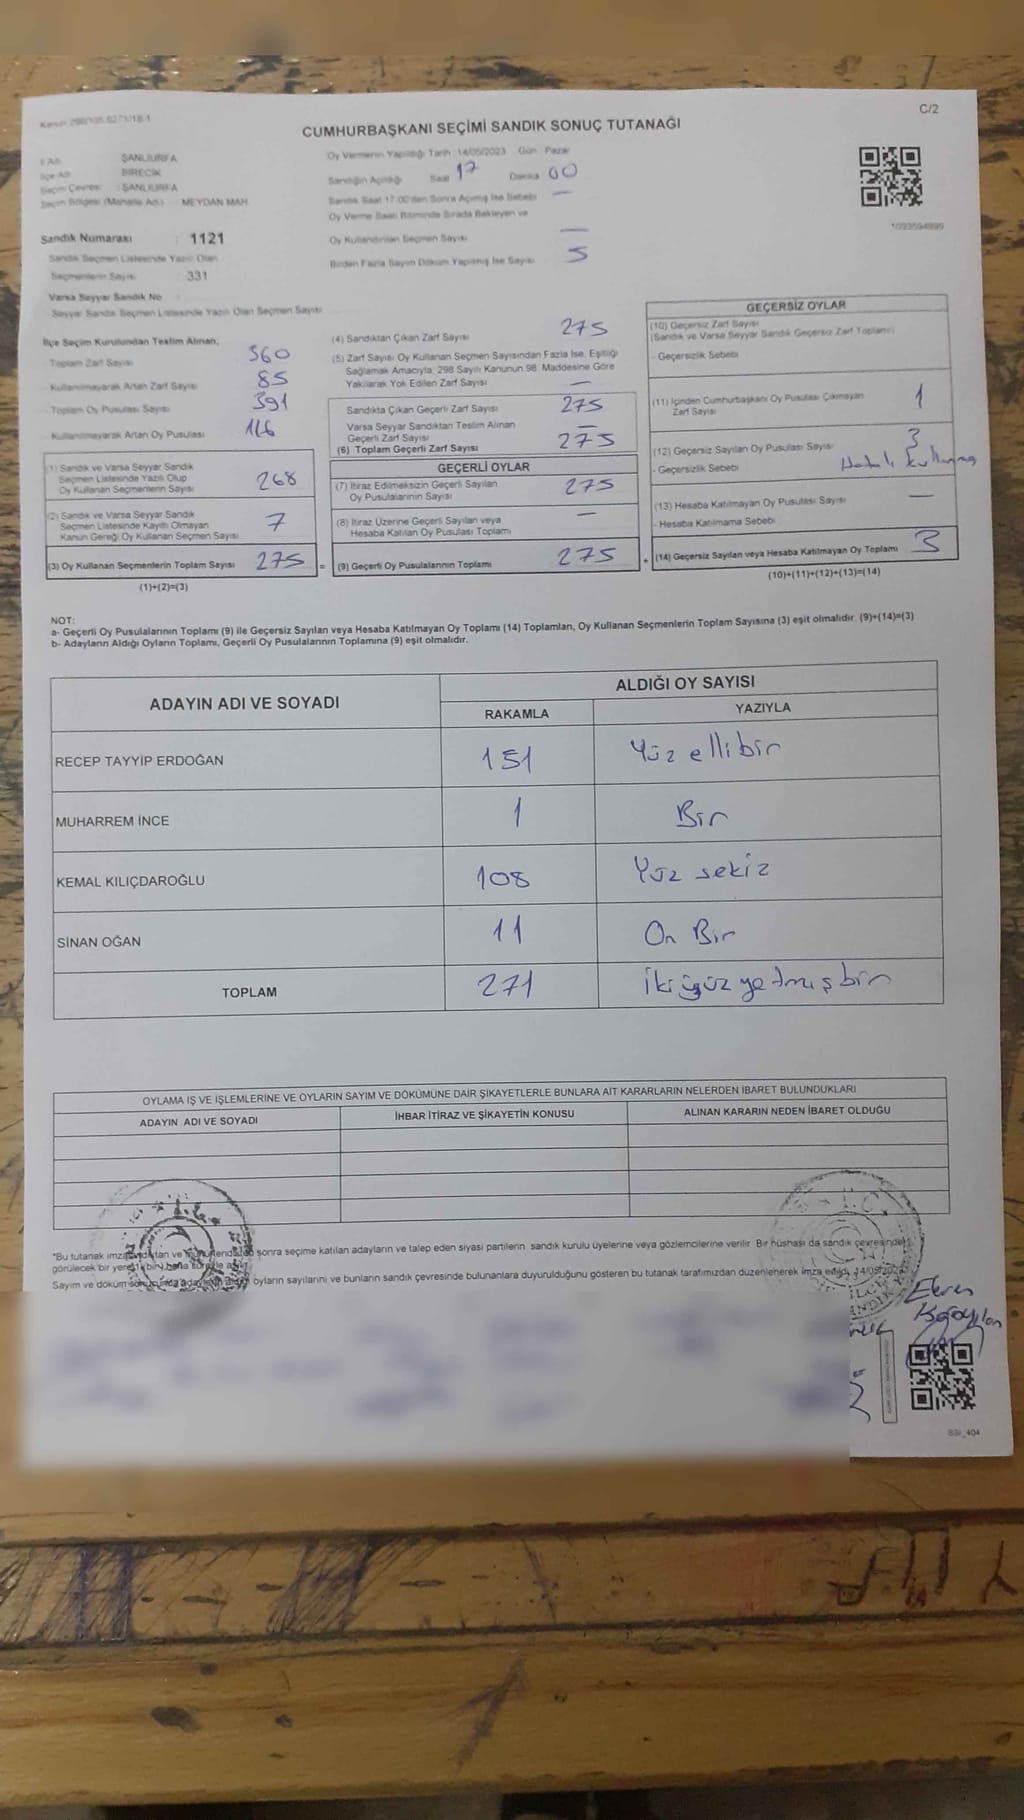 C/2
CUMHURBAŞKANI SEÇİMİ SANDIK SONUÇ TUTANAĞI
İl Adı : ŞANLIURFA
İlçe Adı : BİRECİK
Seçim Çevresi : ŞANLIURFA
Seçim Bölgesi (Mahalle Adı) : MEYDAN MAH.
Sandık Numarası : 1121
Sandık Seçmen Listesinde Yazılı Olan
Seçmenlerin Sayısı : 331
Varsa Seyyar Sandık No
Seyyar Sandık Seçmen Listesinde Yazılı Olan Seçmen Sayısı
Oy Vermenin Yapıldığı Tarih : 14/05/2023 Gün : Pazar
Sandığın Açıldığı Saat 17 Dakika 00
Sandık Saat 17:00'den Sonra Açılmış İse Sebebi —
Oy Verme Saati Bitiminde Sırada Bekleyen ve
Oy Kullandırılan Seçmen Sayısı —
Birden Fazla Sayım Döküm Yapılmış İse Sayısı 5
1093594899
İlçe Seçim Kurulundan Teslim Alınan;
Toplam Zarf Sayısı 360
Kullanılmayarak Artan Zarf Sayısı 85
Toplam Oy Pusulası Sayısı 391
Kullanılmayarak Artan Oy Pusulası 116
(1) Sandık ve Varsa Seyyar Sandık
Seçmen Listesinde Yazılı Olup
Oy Kullanan Seçmenlerin Sayısı 268
(2) Sandık ve Varsa Seyyar Sandık
Seçmen Listesinde Kayıtlı Olmayan
Kanun Gereği Oy Kullanan Seçmen Sayısı 7
(3) Oy Kullanan Seçmenlerin Toplam Sayısı 275 =
(1)+(2)=(3)
(4) Sandıktan Çıkan Zarf Sayısı 275
(5) Zarf Sayısı Oy Kullanan Seçmen Sayısından Fazla İse, Eşitliği
Sağlamak Amacıyla; 298 Sayılı Kanunun 98. Maddesine Göre
Yakılarak Yok Edilen Zarf Sayısı —
Sandıkta Çıkan Geçerli Zarf Sayısı 275
Varsa Seyyar Sandıktan Teslim Alınan
Geçerli Zarf Sayısı —
(6) Toplam Geçerli Zarf Sayısı 275
GEÇERLİ OYLAR
(7) İtiraz Edilmeksizin Geçerli Sayılan
Oy Pusulalarının Sayısı 275
(8) İtiraz Üzerine Geçerli Sayılan veya
Hesaba Katılan Oy Pusulası Toplamı —
(9) Geçerli Oy Pusulalarının Toplamı 275 +
GEÇERSİZ OYLAR
(10) Geçersiz Zarf Sayısı
(Sandık ve Varsa Seyyar Sandık Geçersiz Zarf Toplamı)
- Geçersizlik Sebebi
(11) İçinden Cumhurbaşkanı Oy Pusulası Çıkmayan
Zarf Sayısı 1
(12) Geçersiz Sayılan Oy Pusulası Sayısı 3
- Geçersizlik Sebebi Hatalı kullanma
(13) Hesaba Katılmayan Oy Pusulası Sayısı —
- Hesaba Katılmama Sebebi
(14) Geçersiz Sayılan veya Hesaba Katılmayan Oy Toplamı 3
(10)+(11)+(12)+(13)=(14)
NOT:
a- Geçerli Oy Pusulalarının Toplamı (9) ile Geçersiz Sayılan veya Hesaba Katılmayan Oy Toplamı (14) Toplamları, Oy Kullanan Seçmenlerin Toplam Sayısına (3) eşit olmalıdır. (9)+(14)=(3)
b- Adayların Aldığı Oyların Toplamı, Geçerli Oy Pusulalarının Toplamına (9) eşit olmalıdır.
ADAYIN ADI VE SOYADI ALDIĞI OY SAYISI
RAKAMLA YAZIYLA
RECEP TAYYİP ERDOĞAN 151 Yüz ellibir
MUHARREM İNCE 1 Bir
KEMAL KILIÇDAROĞLU 108 Yüz sekiz
SİNAN OĞAN 11 On Bir
TOPLAM 271 İkiyüz yetmişbir
OYLAMA İŞ VE İŞLEMLERİNE VE OYLARIN SAYIM VE DÖKÜMÜNE DAİR ŞİKAYETLERLE BUNLARA AİT KARARLARIN NELERDEN İBARET BULUNDUKLARI
ADAYIN ADI VE SOYADI İHBAR İTİRAZ VE ŞİKAYETİN KONUSU ALINAN KARARIN NEDEN İBARET OLDUĞU
*Bu tutanak sonra seçime katılan adayların ve talep eden siyasi partilerin sandık kurulu üyelerine veya gözlemcilerine verilir. Bir nüshası da sandık çevresinde
görülecek bir yere 1 (bir) hafta süreyle
Sayım ve döküm oyların sayılarını ve bunların sandık çevresinde bulunanlara duyurulduğunu gösteren bu tutanak tarafımızdan düzenlenerek imza edildi.
Ekrem
BSI_404